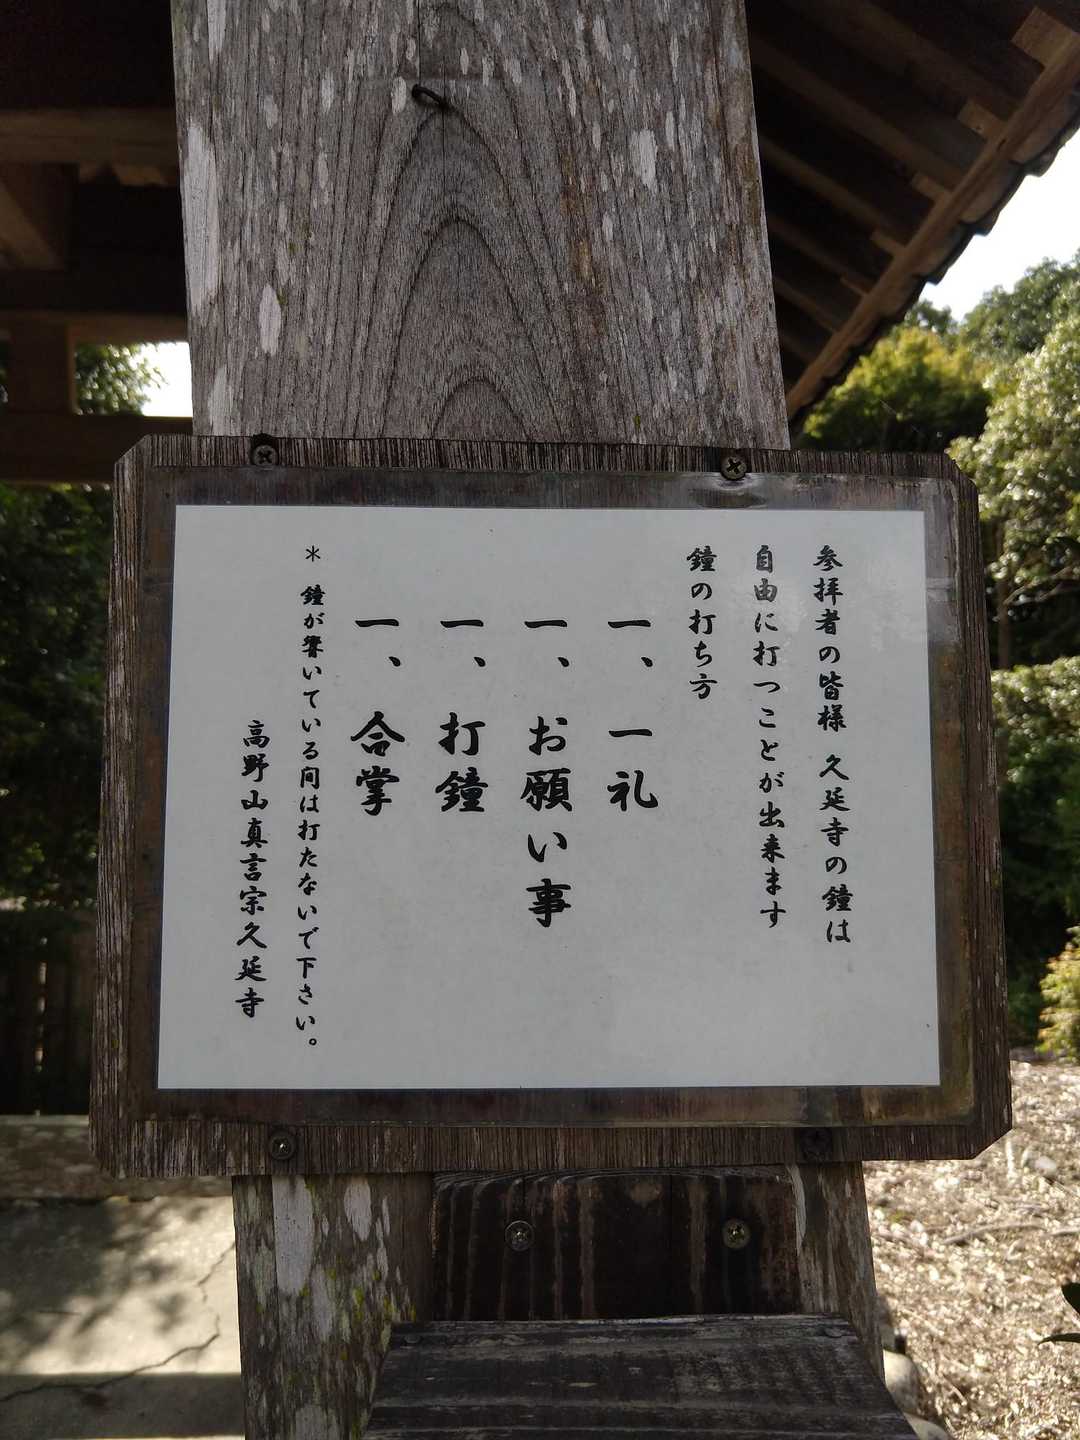 参拝者の皆様 久延寺の鐘は
自由に打つことが出来ます
鐘の打ち方
一、一礼
一、お願い事
一、打鐘
一、合掌
＊ 鐘が響いている間は打たないで下さい。
高野山真言宗久延寺